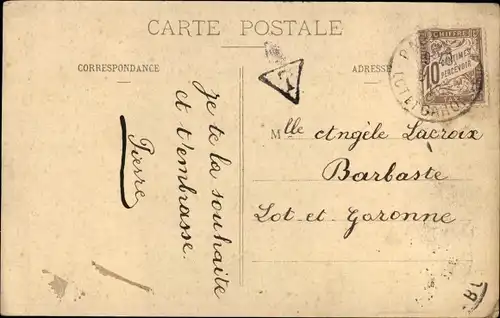 CARTE POSTALE
CORRESPONDANCE
ADRESSE
je te la souhaite
et t'embrasse.
Pierre
T
CHIFFRE
10 CENTIMES
À PERCEVOIR
Mlle Angèle Lacroix
Barbaste
Lot-et-Garonne